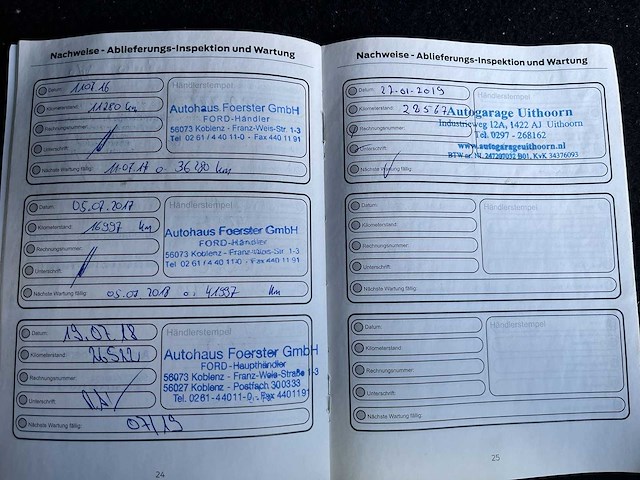 Nachweise - Ablieferungs-Inspektion und Wartung
Datum: 11.07.16
Händlerstempel
Kilometerstand: 11280 km
Autohaus Foerster GmbH
FORD-Händler
Rechnungsnummer:
56073 Koblenz - Franz-Weis-Str. 1-3
Tel. 02 61 / 4 40 11-0 - Fax 4 40 11 91
Unterschrift:
Nächste Wartung fällig: 11.07.17 o. 36280 km
Datum: 05.07.2017
Händlerstempel
Kilometerstand: 16997 km
Autohaus Foerster GmbH
FORD-Händler
Rechnungsnummer:
56073 Koblenz - Franz-Weis-Str. 1-3
Tel. 02 61 / 4 40 11-0 - Fax 4 40 11 91
Unterschrift:
Nächste Wartung fällig: 05.07.2018 o. 41997 km
Datum: 19.07.18
Händlerstempel
Kilometerstand:
Autohaus Foerster GmbH
FORD-Haupthändler
Rechnungsnummer:
56073 Koblenz - Franz-Weis-Straße 1-3
56027 Koblenz - Postfach 300333
Unterschrift:
Tel. 0261-44011-0 - Fax 4401191
Nächste Wartung fällig: 07/19
24
Nachweise - Ablieferungs-Inspektion und Wartung
Datum: 22-01-2019
Händlerstempel
Kilometerstand: 28567
Autogarage Uithoorn
Industrieweg 12A, 1422 AJ Uithoorn
Rechnungsnummer:
Tel. 0297 - 268162
Unterschrift:
www.autogarageuithoorn.nl
BTW nr. NL 247207032 B01, KvK 34376093
Nächste Wartung fällig:
Datum:
Händlerstempel
Kilometerstand:
Rechnungsnummer:
Unterschrift:
Nächste Wartung fällig:
Datum:
Händlerstempel
Kilometerstand:
Rechnungsnummer:
Unterschrift:
Nächste Wartung fällig:
25